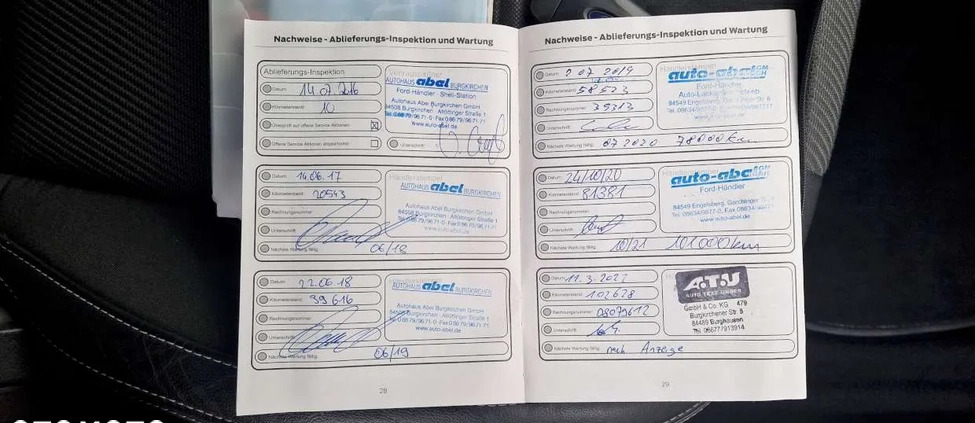 Nachweise - Ablieferungs-Inspektion und Wartung
Ablieferungs-Inspektion
Datum: 14 07 2016
Kilometerstand: 10
Überprüft auf offene Service-Aktionen
Offene Service-Aktionen abgearbeitet
Unterschrift:
AUTOHAUS abel BURGKIRCHEN
Ford-Händler - Shell-Station
Autohaus Abel Burgkirchen GmbH
84508 Burgkirchen - Altöttinger Straße 1
www.auto-abel.de
Datum: 14.06.17
Kilometerstand: 20543
Rechnungsnummer:
Unterschrift:
Nächste Wartung fällig: 06/18
Händlerstempel
AUTOHAUS abel BURGKIRCHEN
Autohaus Abel Burgkirchen GmbH
84508 Burgkirchen - Altöttinger Straße 1
www.auto-abel.de
Datum: 22.06.18
Kilometerstand: 39616
Rechnungsnummer:
Unterschrift:
Nächste Wartung fällig: 06/19
AUTOHAUS abel BURGKIRCHEN
Autohaus Abel Burgkirchen GmbH
84508 Burgkirchen - Altöttinger Straße 1
www.auto-abel.de
28
Nachweise - Ablieferungs-Inspektion und Wartung
Datum: 2 07 2019
Kilometerstand: 58523
Rechnungsnummer: 35313
Unterschrift:
Nächste Wartung fällig: 07 2020 78000 km
auto-abel
Ford-Händler
84549 Engelsberg
Datum: 24/10/20
Kilometerstand: 81381
Rechnungsnummer:
Unterschrift:
Nächste Wartung fällig: 10/21 101000km
auto-abel
Ford-Händler
84549 Engelsberg
www.auto-abel.de
Datum: 11.3.2022
Kilometerstand: 102628
Rechnungsnummer: 08079612
Unterschrift:
Nächste Wartung fällig: nach Anzeige
A.T.U
AUTO TEILE UNGER
GmbH & Co. KG 479
Burgkirchener Str. 8
84489 Burghausen
Tel. 08677/913914
29